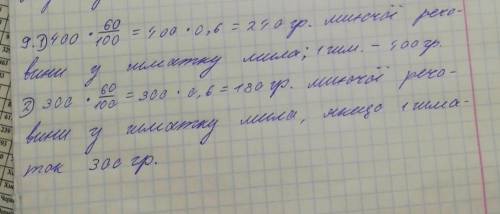 9. 1) 400 · 60/100 = 400 · 0,6 = 240 гр. миючої речо-
вини у шматку мила; 1 шм. – 400 гр.
2) 300 · 60/100 = 300 · 0,6 = 180 гр. миючої речо-
вини у шматку мила, якщо 1 шма-
ток 300 гр.